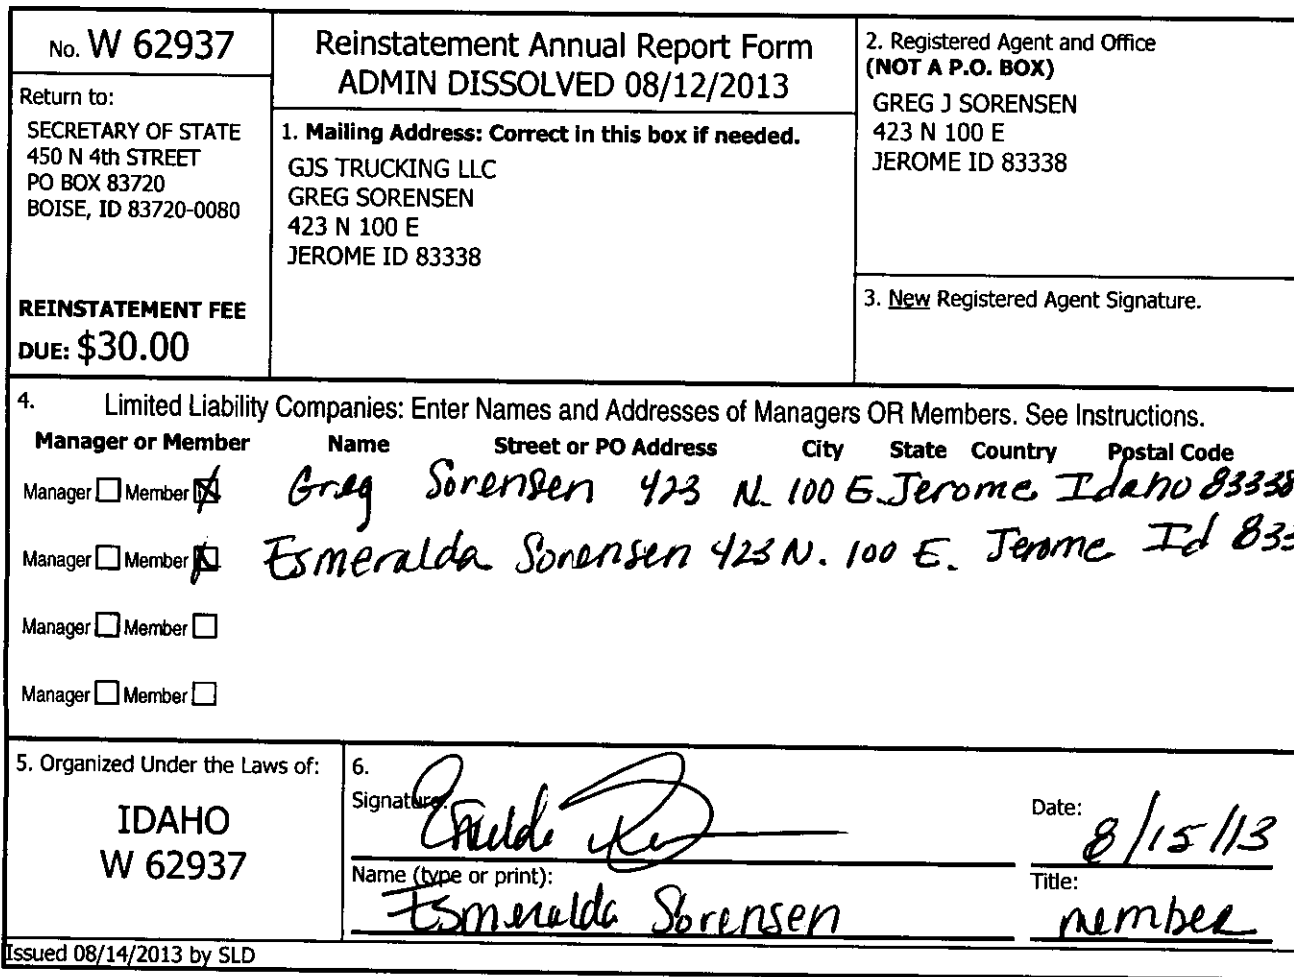 No. W 62937
Return to:
SECRETARY OF STATE
450 N 4th STREET
PO BOX 83720
BOISE, ID 83720-0080
REINSTATEMENT FEE
DUE: $30.00
Reinstatement Annual Report Form
ADMIN DISSOLVED 08/12/2013
1. Mailing Address: Correct in this box if needed.
GJS TRUCKING LLC
GREG SORENSEN
423 N 100 E
JEROME ID 83338
2. Registered Agent and Office
(NOT A P.O. BOX)
GREG J SORENSEN
423 N 100 E
JEROME ID 83338
3. New Registered Agent Signature.
4. Limited Liability Companies: Enter Names and Addresses of Managers OR Members. See Instructions.
Manager or Member Name Street or PO Address City State Country Postal Code
Manager Member Greg Sorensen 423 N. 100 E. Jerome Idaho 83338
Manager Member Esmeralda Sorensen 423 N. 100 E. Jerome Id 833
Manager Member
Manager Member
5. Organized Under the Laws of:
IDAHO
W 62937
6.
Signature:
Date: 8/15/13
Name (type or print):
Esmeralda Sorensen
Title:
member
Issued 08/14/2013 by SLD